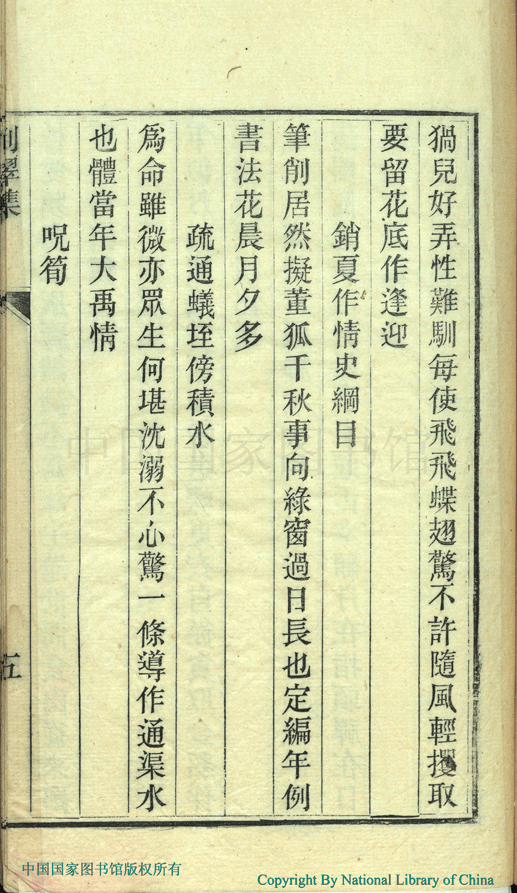 猧兒好弄性難馴每使飛飛蝶翅驚不許隨風輕攫取
要留花底作逢迎
銷夏作情史綱目
筆削居然擬董狐千秋事向綠窗過日長也定編年例
書法花晨月夕多
疏通蟻垤傍積水
爲命雖微亦眾生何堪沈溺不心驚一條導作通渠水
也體當年大禹情
呪筍
集
五
中国国家图书馆版权所有
Copyright By National Library of China